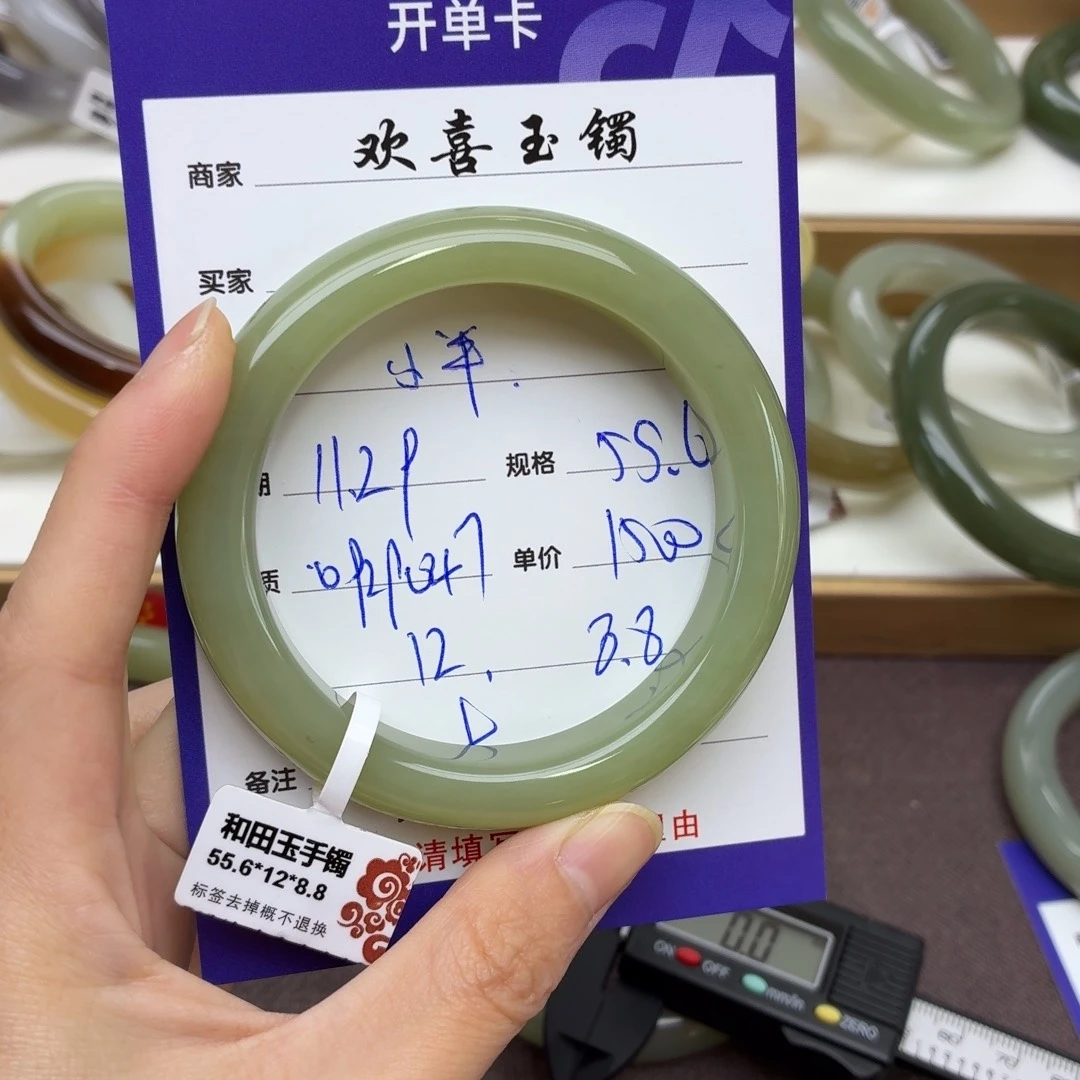 开单卡
商家 欢喜玉镯
买家
小羊.
期 11.29 规格 55.6
质 单价 1500
12. 8.8
D
备注
请填写 由
和田玉手镯
55.6*12*8.8
标签去掉概不退换
0.0
ON OFF mm/in ZERO